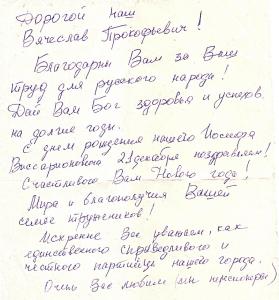 Дорогой наш
Вячеслав Прокофьевич!
Благодарим Вам за Ваш
труд для русского народа!
Дай Вам Бог здоровья и успехов
на долгие годы.
С днем рождения нашего Иосифа
Виссарионовича 21 декабря поздравляем!
Счастливого Вам Нового года!
Мира и благополучия Вашей
семье тружеников!
Искренне Вас уважаем, как
единственного справедливого и
честного партийца нашего города.
Очень Вас любим (мы пенсионеры)